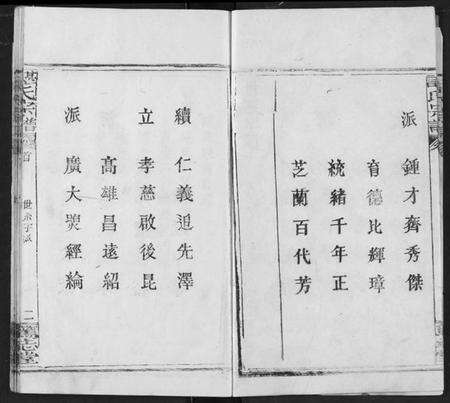 派
鍾才齊秀傑
育德比輝璋
統緒千年正
芝蘭百代芳
續
立
派
仁義追先澤
孝慈啟後昆
高雄昌遠紹
廣大煥經綸
氏宗譜
卷首
世系字派
二
氏宗譜